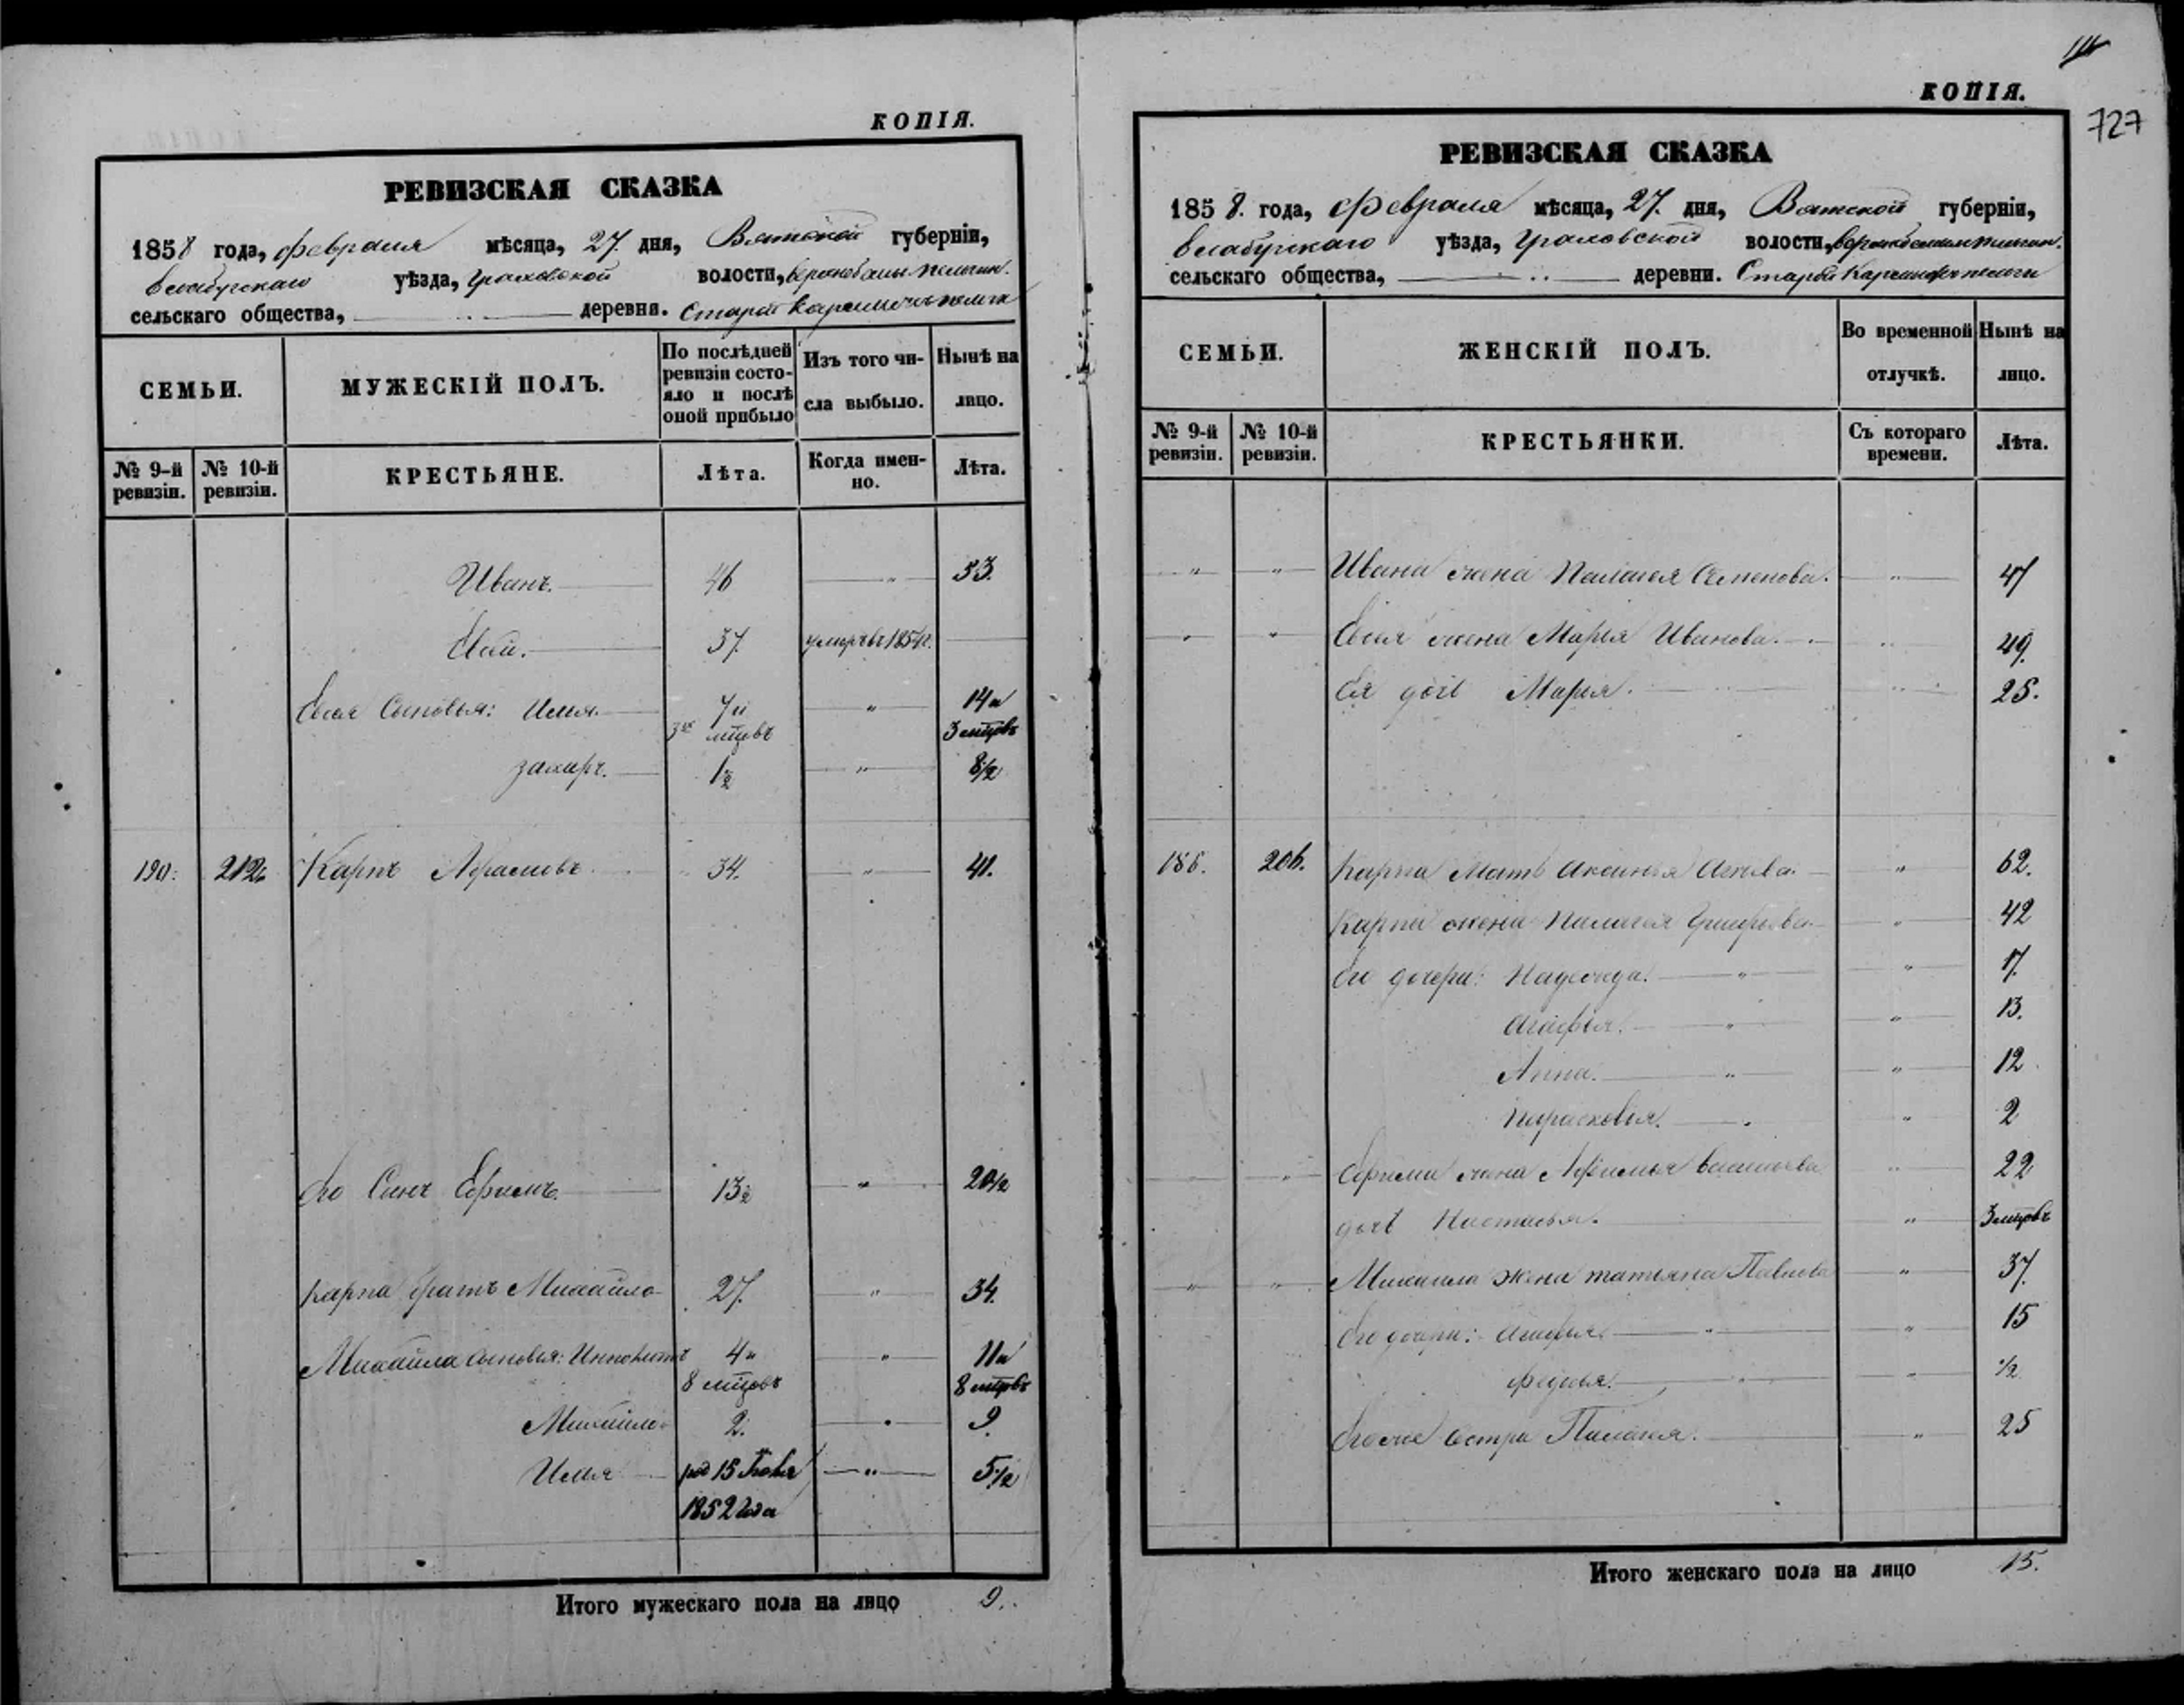 КОПІЯ.
РЕВИЗСКАЯ СКАЗКА
1858 года, февраля мѣсяца, 27 дня, Вятской губерніи,
Елабужскаго уѣзда, Граховской волости,
сельскаго общества, деревни. Старой
СЕМЬИ.
МУЖЕСКІЙ ПОЛЪ.
По послѣдней ревизіи состояло и послѣ оной прибыло
Изъ того числа выбыло.
Нынѣ на лицо.
№ 9-й ревизіи.
№ 10-й ревизіи.
КРЕСТЬЯНЕ.
Лѣта.
Когда именно.
Лѣта.
Иванъ. 46 „ 53.
37. умеръ въ
Сыновья: Илья. 7 и „ 14 и
3 мцовъ
Захаръ. 1½ „ 8½
190. 212. Карпъ 34. „ 41.
Его Сынъ Ефимъ. 13½ „ 20½
Карпа братъ Михайло 27. „ 34.
Михайла сыновья: 4 и „ 11 и
8 мцовъ 8 мцовъ
Михайло 2. „ 9.
Илья род 15 „ 5½
1852 года
Итого мужескаго пола на лицо 9.
КОПІЯ.
727
РЕВИЗСКАЯ СКАЗКА
1858. года, февраля мѣсяца, 27. дня, Вятской губерніи,
Елабужскаго уѣзда, Граховской волости,
сельскаго общества, деревни. Старой
СЕМЬИ.
ЖЕНСКІЙ ПОЛЪ.
Во временной отлучкѣ.
Нынѣ на лицо.
№ 9-й ревизіи.
№ 10-й ревизіи.
КРЕСТЬЯНКИ.
Съ котораго времени.
Лѣта.
„ „ Ивана жена Палагея Семенова. „ 47
„ „ жена Марья Иванова. „ 49.
Ея дочь Марья. „ 25.
186. 206. Карпа Мать Аксинья „ 62.
Карпа жена Палагея „ 42
Его дочери: Надежда. „ 17.
Агафья. „ 13.
Анна. „ 12
Парасковья. „ 2
„ Ефима жена „ 22
дочь Настасья. „ 3 мцовъ
„ „ Михаила жена татьяна Павлова „ 37.
Его дочери: Агафья. „ 15
Федосья. „ ½
Его же сестра Палагея. „ 25
Итого женскаго пола на лицо 15.